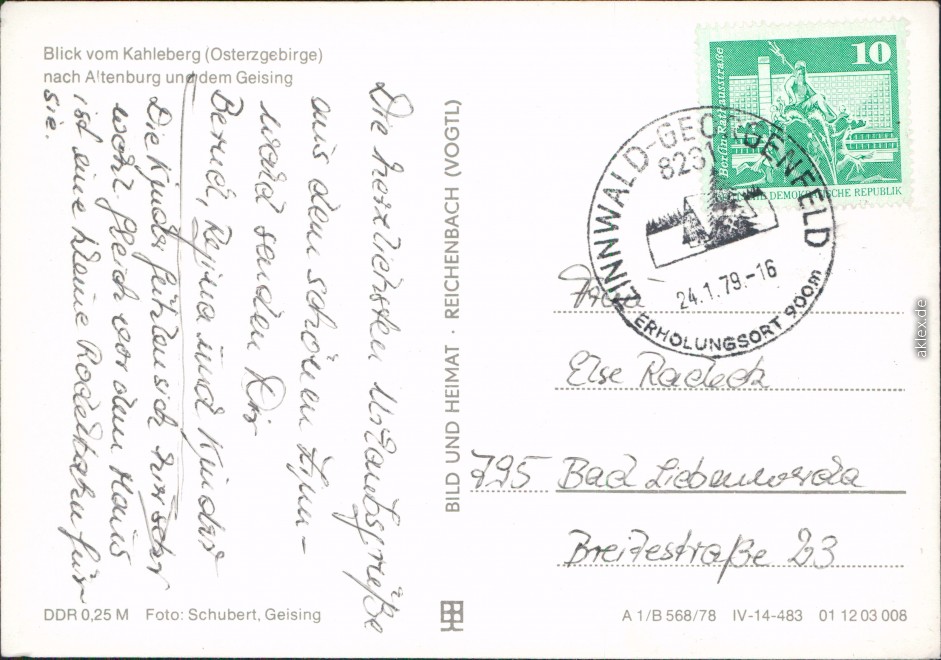 Blick vom Kahleberg (Osterzgebirge)
nach Altenburg und dem Geising
Die herzlichsten Urlaubsgrüße
aus dem schönen Zinn-
wald senden Dir
Bernd, Regina und Kinder
Die Kinder fühlen sich hier sehr
wohl. Gleich vor dem Haus
ist eine kleine Rodelbahn für
sie.
BILD UND HEIMAT · REICHENBACH (VOGTL)
10
Berlin, Rathausstraße
DEMOKRATISCHE REPUBLIK
ZINNWALD-GEORGENFELD
8231
24.1.79.-16
ERHOLUNGSORT 900m
Frau
Else Radeck
795 Bad Liebenwerda
Breitestraße 23
DDR 0,25 M Foto: Schubert, Geising
A 1/B 568/78 IV-14-483 01 12 03 008
aklex.de